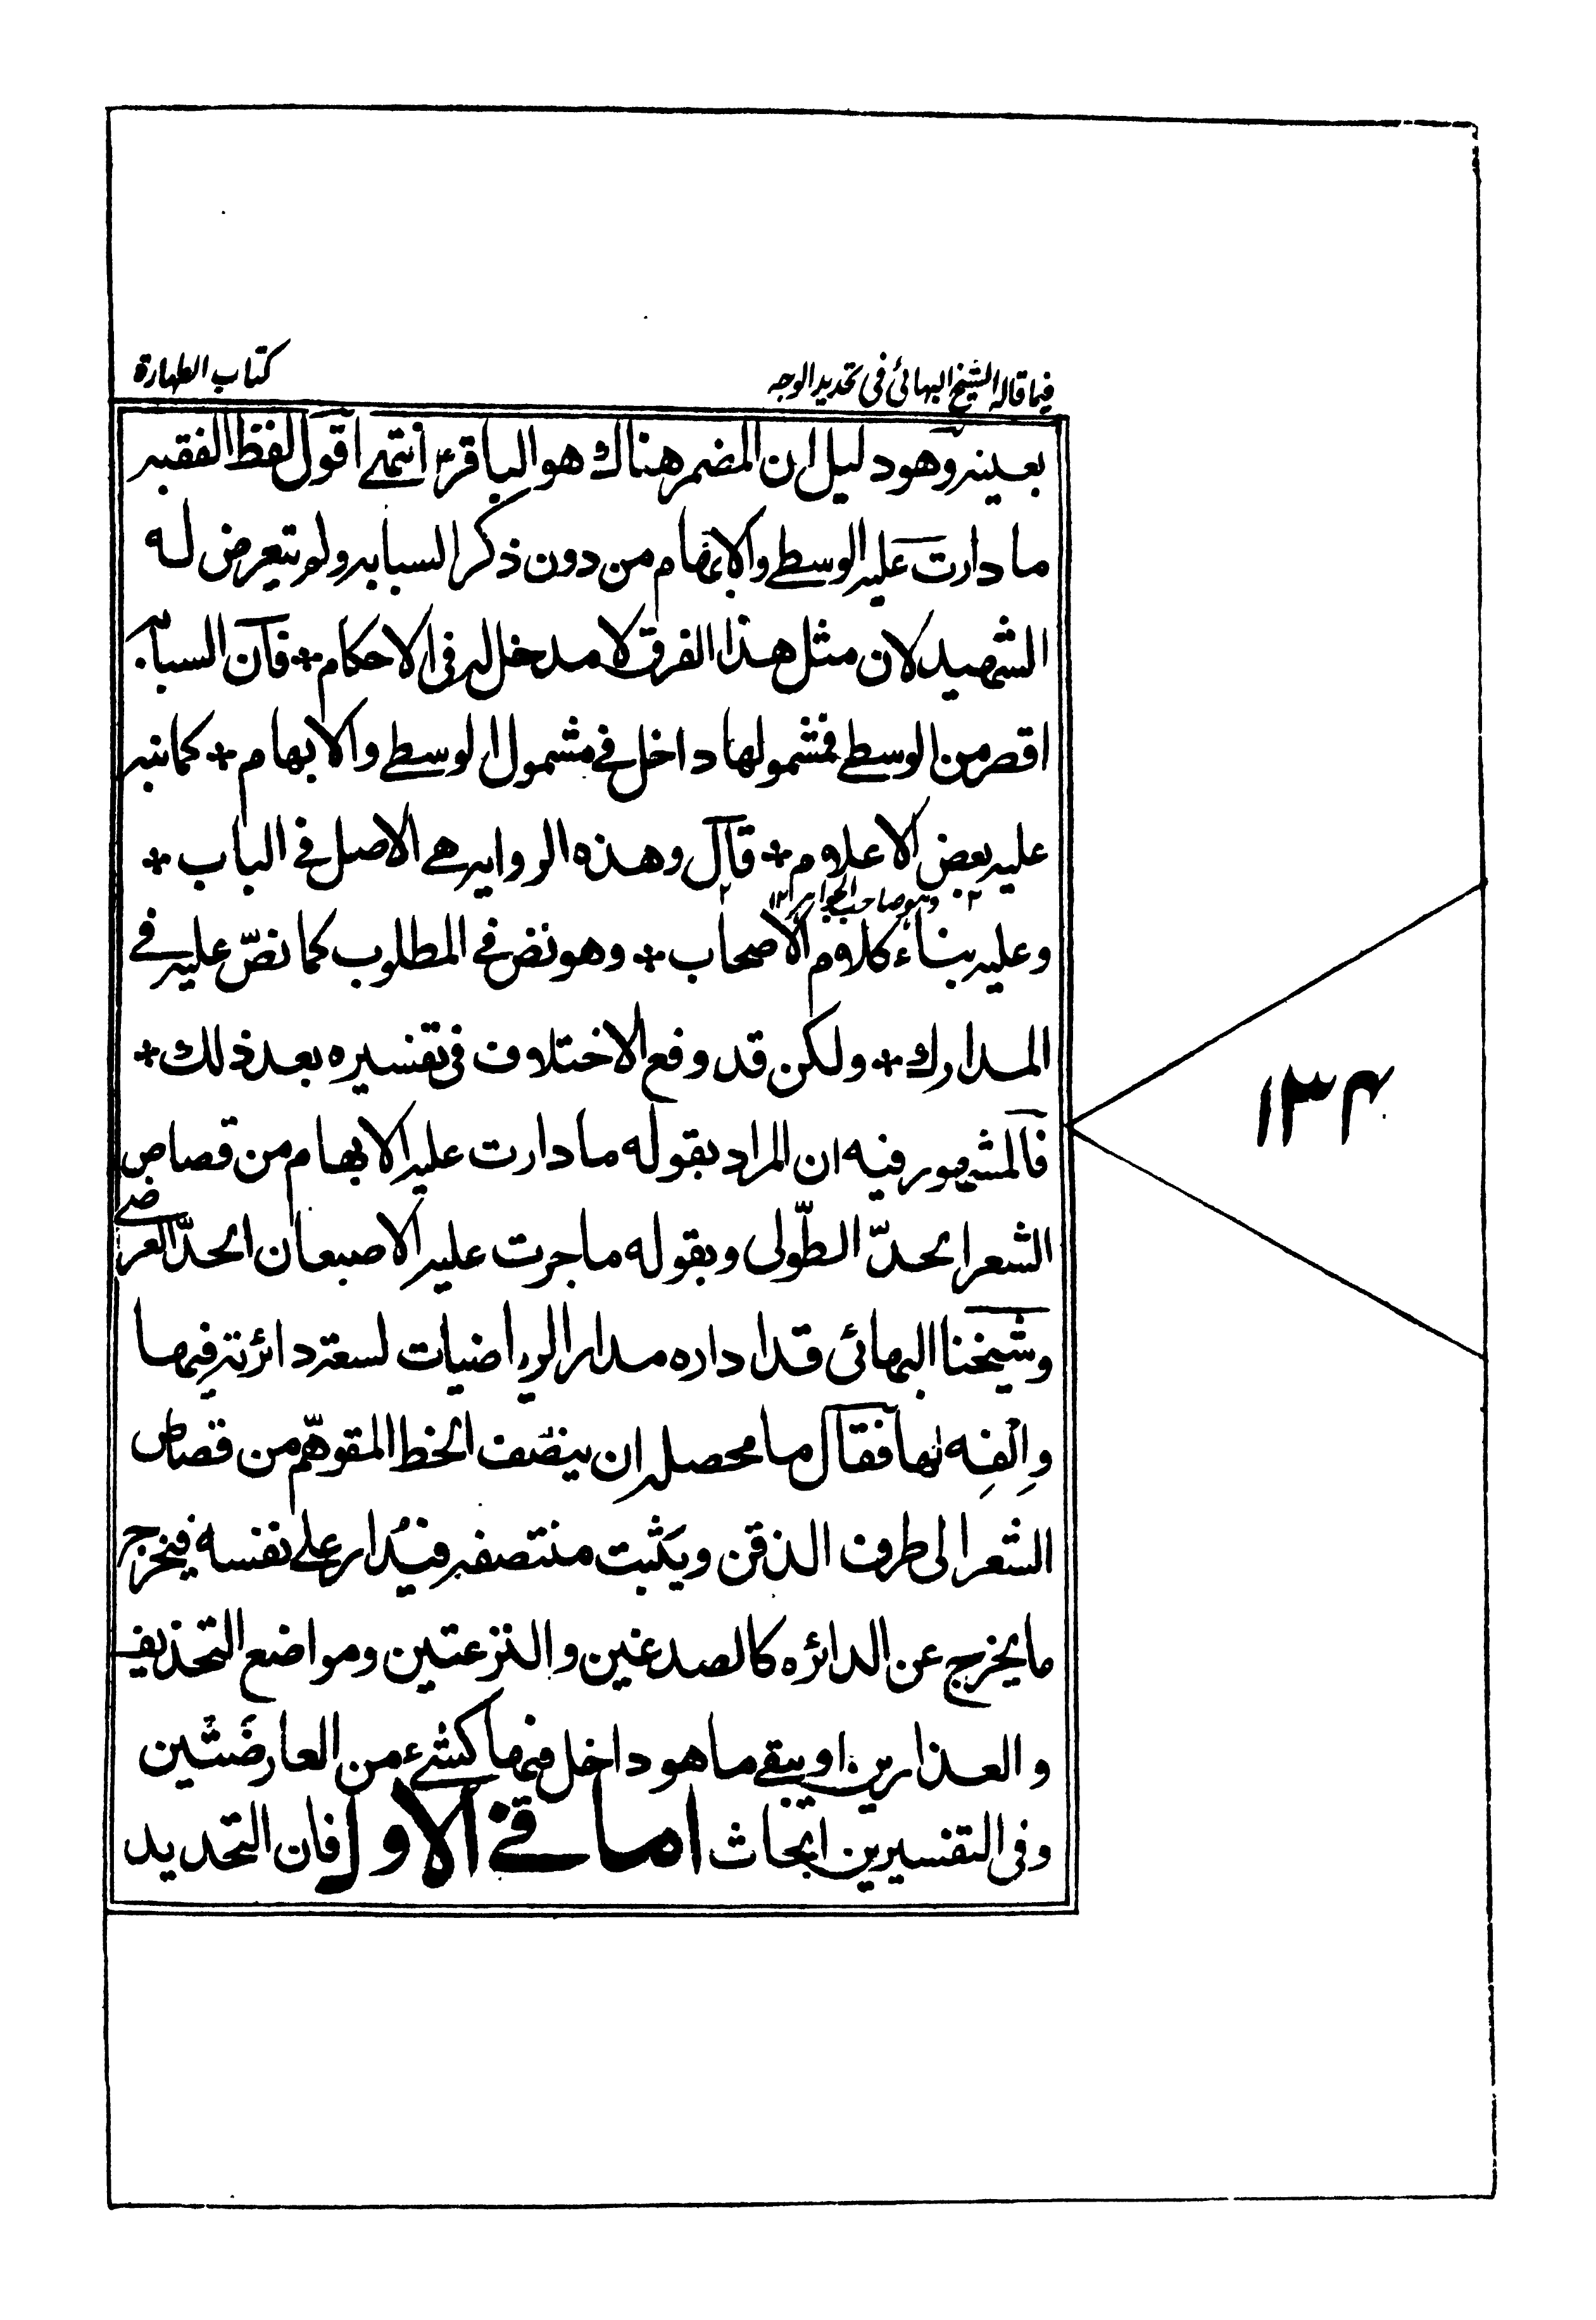 فيما قاله الشيخ البهائى فى تحديد الوجه
كتاب الطهارة
بعينه وهو دليل ان المضمر هناك هو الباقر ع انتهى اقول لفظ الفقيه
ما دارت عليه الوسطى والابهام من دون ذكر السبابه ولم يتعرض له
الشهيد لان مثل هذا الفرق لا مدخل له فى الاحكام * فان السبابه
اقصر من الوسطى فمشمولها داخل فى مشمول الوسطى والابهام * كما نبه
عليه بعض الاعلام * قال وهذه الروايه هى الاصل فى الباب *
٢ وهو صاحب الجواهر ١٢
وعليه بناء كلام الاصحاب * وهو نص فى المطلوب كما نصّ عليه فى
المدارك * ولكن قد وقع الاختلاف فى تفسيره بعد ذلك *
فالمشهور فيه ان المراد بقوله ما دارت عليه الابهام من قصاص
الشعر الحدّ الطّولى وبقوله ما جرت عليه الاصبعان الحدّ العرضى
وشيخنا البهائى قد اداره مدار الرياضيات لسعة دائرته فيها
واِلفِه بها فقال ما محصله ان ينصّف الخط المتوهّم من قصاص
الشعر الى طرف الذقن ويثبت منتصفه فيُدار على نفسه فيخرج
ما يخرج عن الدائره كالصدغين والنزعتين ومواضع التحذيف
والعذارين او يبقى ما هو داخل فيها كشىء من العارضَين
وفى التفسيرين ابحاث اما فى الاول فان التحديد
١٣٤